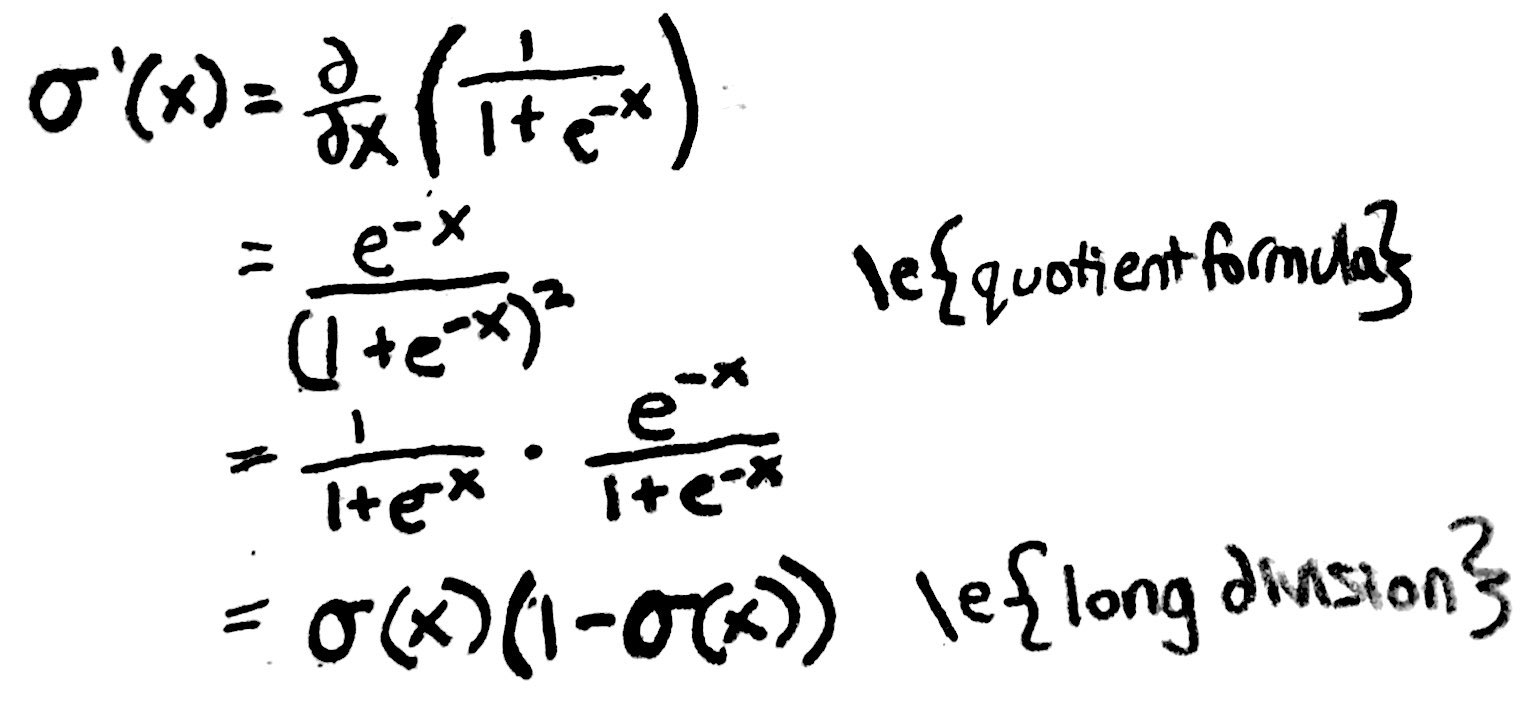 σ'(x) = ∂/∂x (1/(1+e^{-x}))
= e^{-x}/(1+e^{-x})^2 \e{quotient formula}
= 1/(1+e^{-x}) · e^{-x}/(1+e^{-x})
= σ(x)(1-σ(x)) \e{long division}